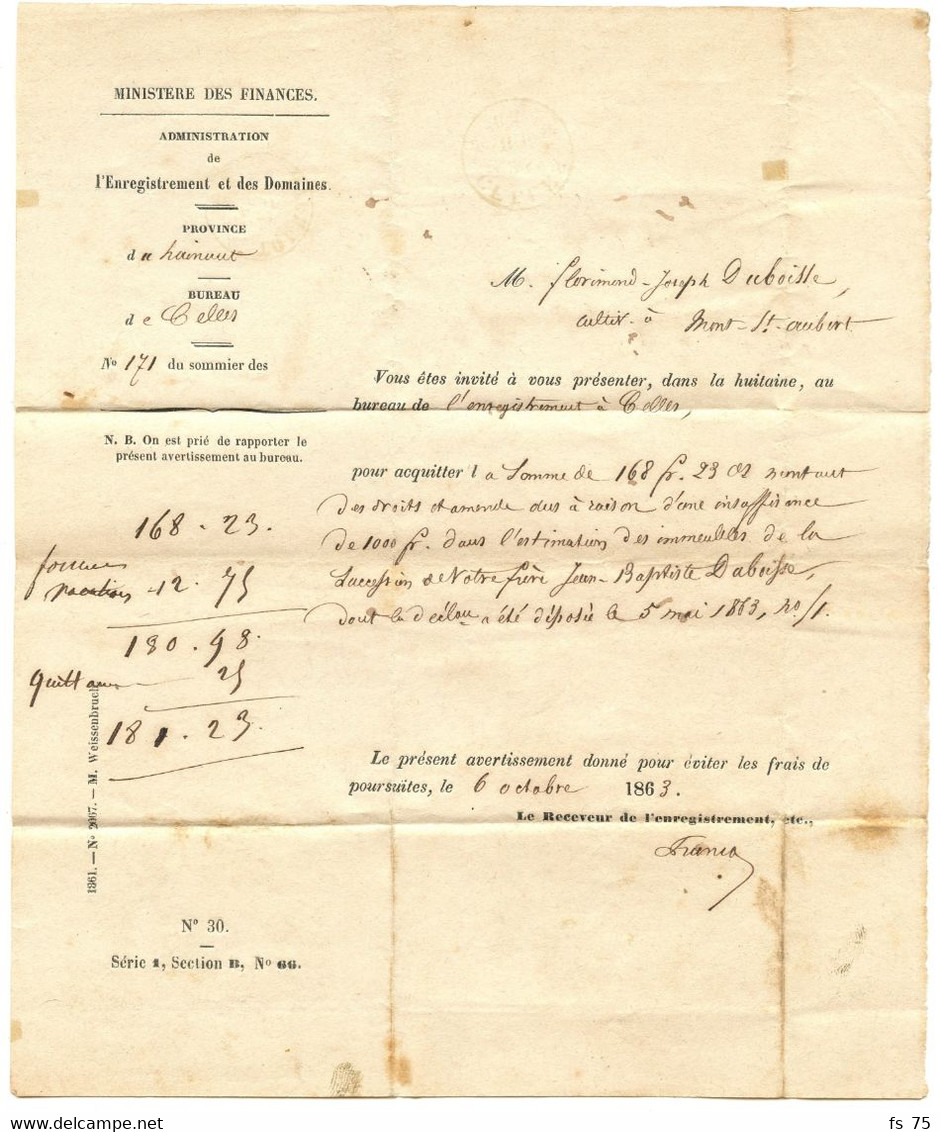 MINISTERE DES FINANCES.
ADMINISTRATION
de
l'Enregistrement et des Domaines.
PROVINCE
du hainaut
BUREAU
de Celles
No 171 du sommier des
N. B. On est prié de rapporter le
présent avertissement au bureau.
M. florimond-Joseph Duboisse,
cultiv. à Mont-St-aubert
Vous êtes invité à vous présenter, dans la huitaine, au
bureau de l'enregistrement à Celles,
pour acquitter la Somme de 168 fr. 23 Ct montant
des droits et amende dus à raison d'une insuffisance
de 1000 fr. dans l'estimation des immeubles de la
Succession de Votre frère Jean-Baptiste Duboisse,
dont la déclon a été déposée le 5 mai 1863, no/1.
168.23.
12.75
180.98.
quittance 25
181.23.
Le présent avertissement donné pour éviter les frais de
poursuites, le 6 octobre 1863.
Le Receveur de l'enregistrement, etc.,
1861. — No 2067. — M. Weissenbruch
No 30.
Série 1, Section B, No 66.
fs 75